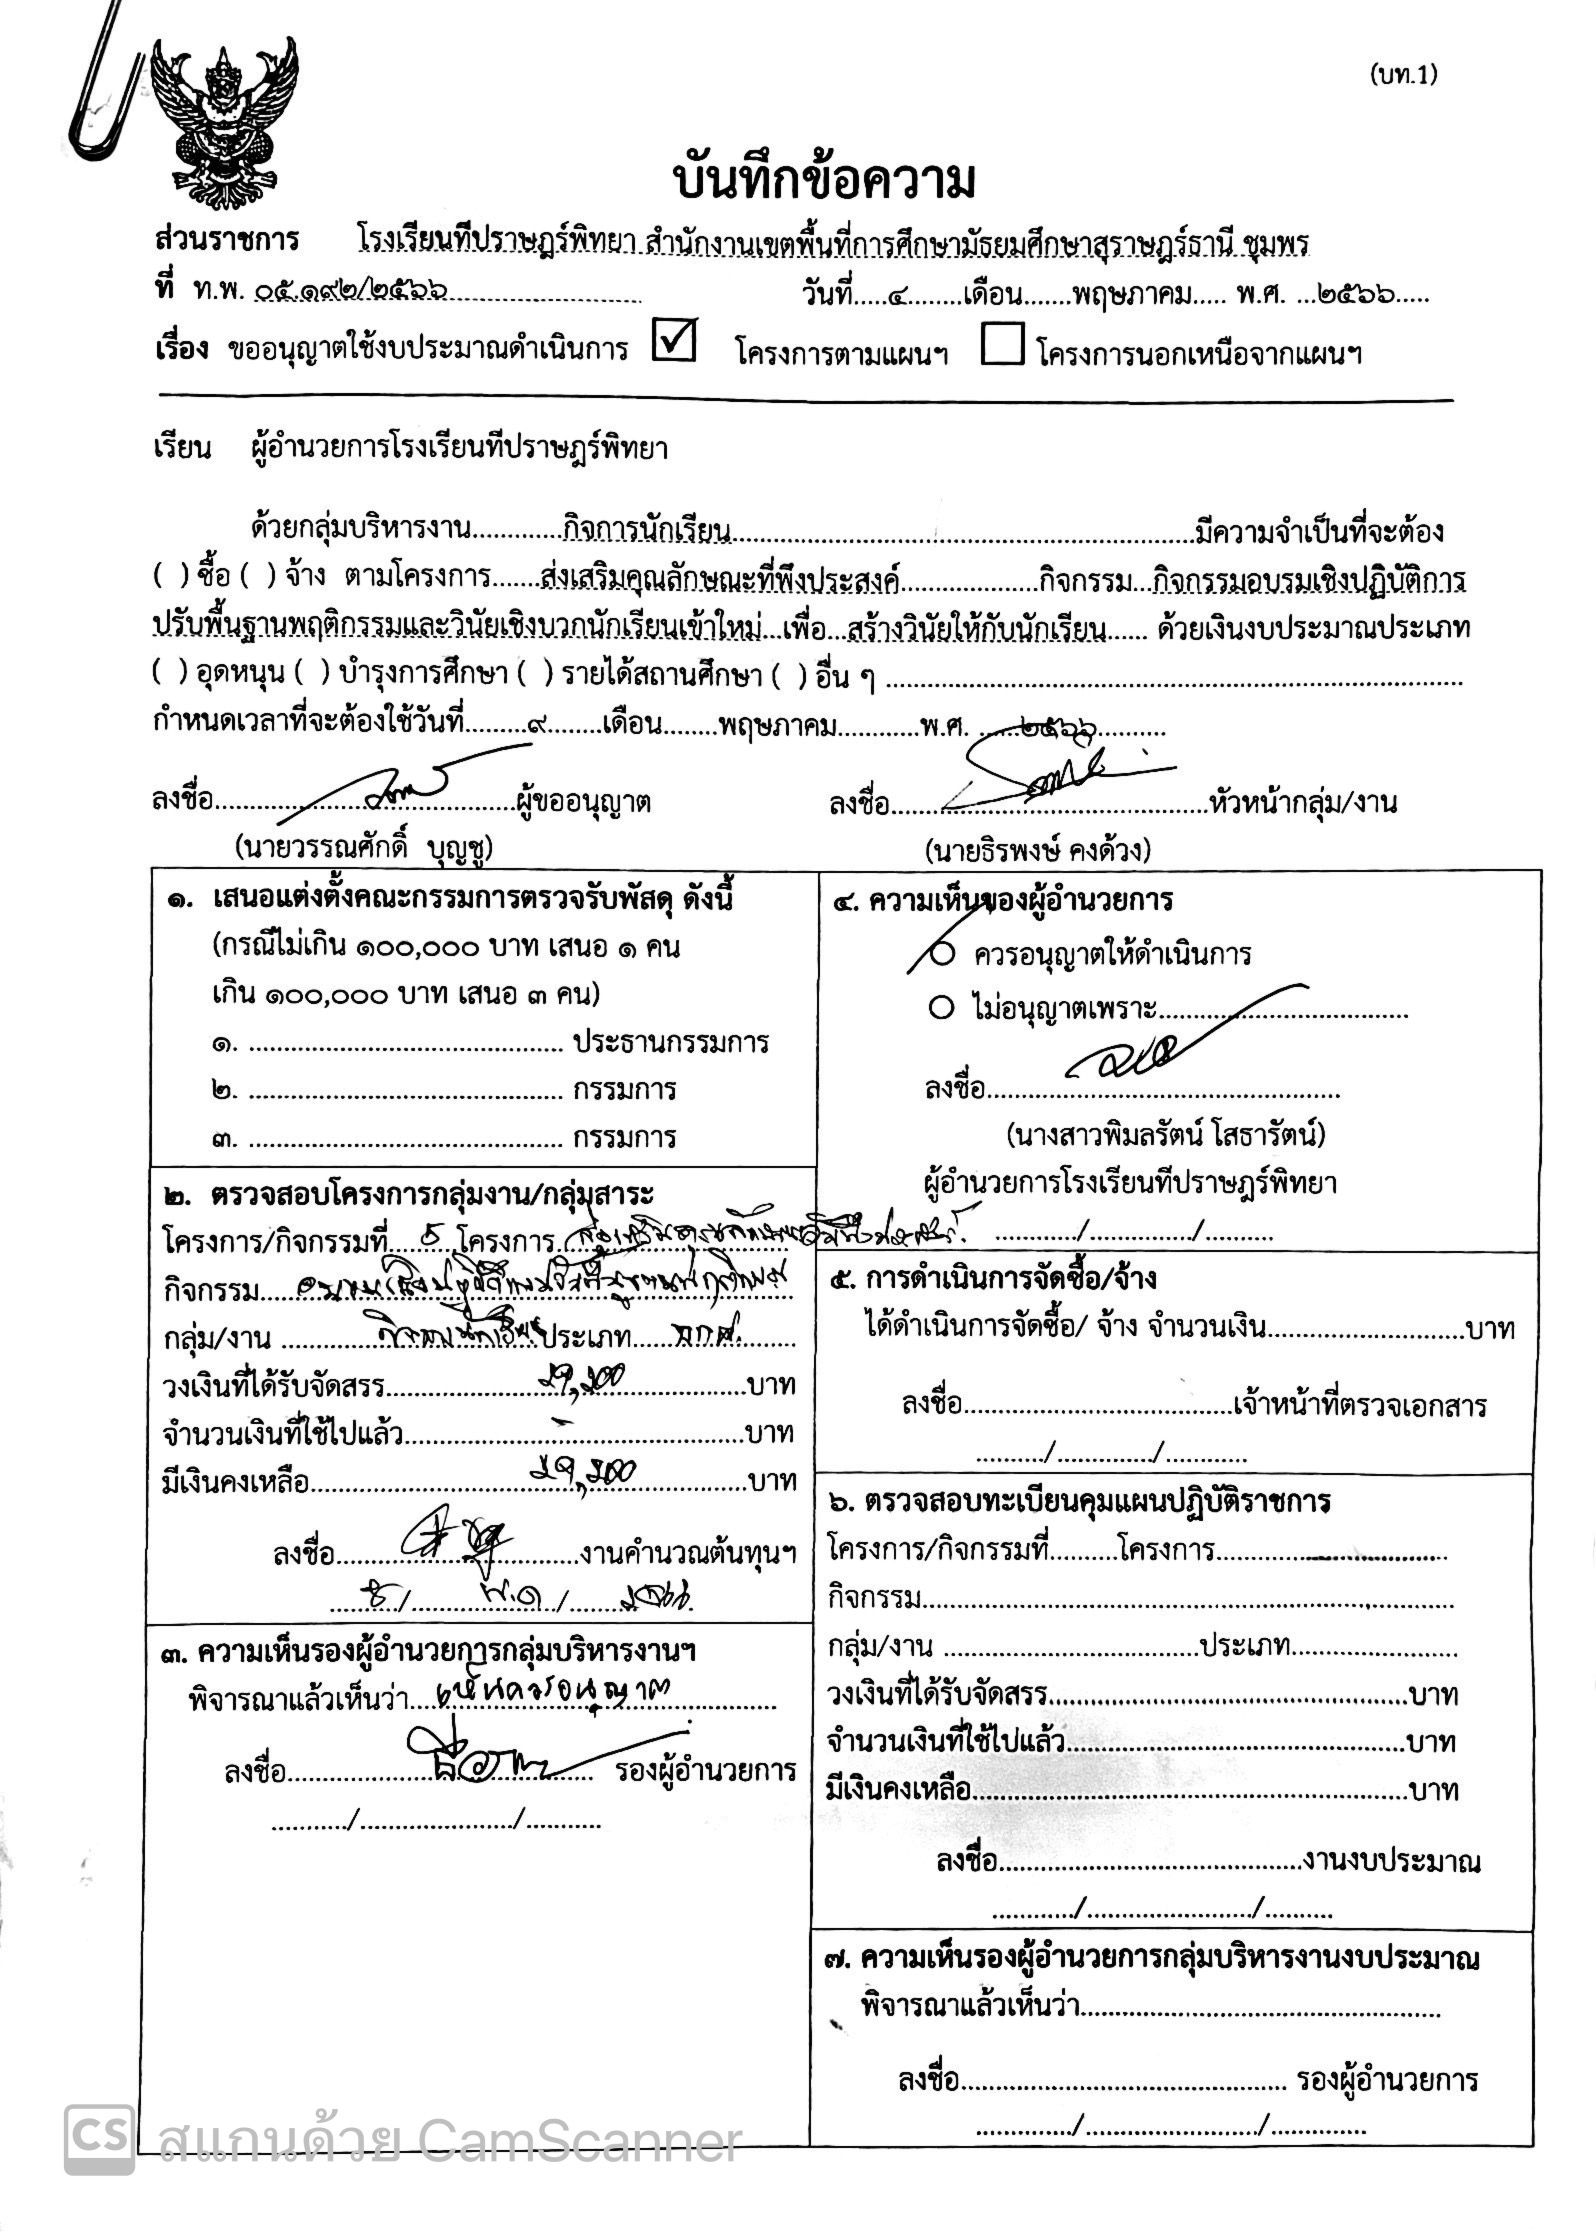 (บท.1)
บันทึกข้อความ
ส่วนราชการ โรงเรียนทีปราษฎร์พิทยา สำนักงานเขตพื้นที่การศึกษามัธยมศึกษาสุราษฎร์ธานี ชุมพร
ที่ ท.พ. ๐๕.๑๙๒/๒๕๖๖ วันที่.....๔........เดือน.......พฤษภาคม..... พ.ศ. ...๒๕๖๖.....
เรื่อง ขออนุญาตใช้งบประมาณดำเนินการ ☑ โครงการตามแผนฯ ☐ โครงการนอกเหนือจากแผนฯ
เรียน ผู้อำนวยการโรงเรียนทีปราษฎร์พิทยา
ด้วยกลุ่มบริหารงาน............กิจการนักเรียน............มีความจำเป็นที่จะต้อง
( ) ซื้อ ( ) จ้าง ตามโครงการ.......ส่งเสริมคุณลักษณะที่พึงประสงค์..................กิจกรรม...กิจกรรมอบรมเชิงปฏิบัติการ
ปรับพื้นฐานพฤติกรรมและวินัยเชิงบวกนักเรียนเข้าใหม่...เพื่อ...สร้างวินัยให้กับนักเรียน...... ด้วยเงินงบประมาณประเภท
( ) อุดหนุน ( ) บำรุงการศึกษา ( ) รายได้สถานศึกษา ( ) อื่น ๆ ............
กำหนดเวลาที่จะต้องใช้วันที่........๙........เดือน.......พฤษภาคม...........พ.ศ. ......๒๕๖๖..........
ลงชื่อ............ผู้ขออนุญาต ลงชื่อ............หัวหน้ากลุ่ม/งาน
(นายวรรณศักดิ์ บุญชู) (นายธิรพงษ์ คงด้วง)
๑. เสนอแต่งตั้งคณะกรรมการตรวจรับพัสดุ ดังนี้
(กรณีไม่เกิน ๑๐๐,๐๐๐ บาท เสนอ ๑ คน
เกิน ๑๐๐,๐๐๐ บาท เสนอ ๓ คน)
๑. ............ ประธานกรรมการ
๒. ............ กรรมการ
๓. ............ กรรมการ
๒. ตรวจสอบโครงการกลุ่มงาน/กลุ่มสาระ
โครงการ/กิจกรรมที่............โครงการ ส่งเสริมคุณลักษณะอันพึงประสงค์
กิจกรรม............
กลุ่ม/งาน ............กิจการนักเรียน ประเภท............
วงเงินที่ได้รับจัดสรร............บาท
จำนวนเงินที่ใช้ไปแล้ว............-............บาท
มีเงินคงเหลือ............บาท
ลงชื่อ............งานคำนวณต้นทุนฯ
............/...พ.ค..../...๒๕๖๖
๓. ความเห็นรองผู้อำนวยการกลุ่มบริหารงานฯ
พิจารณาแล้วเห็นว่า....เห็นควรอนุญาต............
ลงชื่อ............ รองผู้อำนวยการ
.........../...................../...........
๔. ความเห็นของผู้อำนวยการ
○ ควรอนุญาตให้ดำเนินการ
○ ไม่อนุญาตเพราะ............
ลงชื่อ............
(นางสาวพิมลรัตน์ โสธารัตน์)
ผู้อำนวยการโรงเรียนทีปราษฎร์พิทยา
............/............../..........
๕. การดำเนินการจัดซื้อ/จ้าง
ได้ดำเนินการจัดซื้อ/ จ้าง จำนวนเงิน............บาท
ลงชื่อ............เจ้าหน้าที่ตรวจเอกสาร
........../............../...........
๖. ตรวจสอบทะเบียนคุมแผนปฏิบัติราชการ
โครงการ/กิจกรรมที่..........โครงการ............
กิจกรรม............
กลุ่ม/งาน ............ประเภท............
วงเงินที่ได้รับจัดสรร............บาท
จำนวนเงินที่ใช้ไปแล้ว............บาท
มีเงินคงเหลือ............บาท
ลงชื่อ............งานงบประมาณ
............/......................../..........
๗. ความเห็นรองผู้อำนวยการกลุ่มบริหารงานงบประมาณ
พิจารณาแล้วเห็นว่า............
ลงชื่อ............ รองผู้อำนวยการ
............../........................./..............
CS สแกนด้วย CamScanner